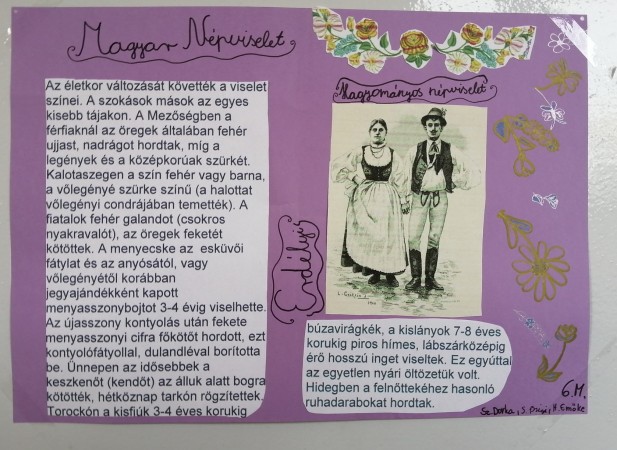 Magyar Népviselet
Az életkor változását követték a viselet
színei. A szokások mások az egyes
kisebb tájakon. A Mezőségben a
férfiaknál az öregek általában fehér
ujjast, nadrágot hordtak, míg a
legények és a középkorúak szürkét.
Kalotaszegen a szín fehér vagy barna,
a vőlegényé szürke színű (a halottat
vőlegényi condrájában temették). A
fiatalok fehér galandot (csokros
nyakravalót), az öregek feketét
kötöttek. A menyecske az esküvői
fátylat és az anyósától, vagy
vőlegényétől korábban
jegyajándékként kapott
menyasszonybojtot 3-4 évig viselhette.
Az újasszony kontyolás után fekete
menyasszonyi cifra főkötőt hordott, ezt
kontyolófátyollal, dulandléval borította
be. Ünnepen az idősebbek a
keszkenőt (kendőt) az álluk alatt bogra
kötötték, hétköznap tarkón rögzítettek.
Torockón a kisfiúk 3-4 éves korukig
Erdélyi
Hagyományos népviselet
búzavirágkék, a kislányok 7-8 éves
korukig piros hímes, lábszárközépig
érő hosszú inget viseltek. Ez egyúttal
az egyetlen nyári öltözetük volt.
Hidegben a felnőttekéhez hasonló
ruhadarabokat hordtak.
6.M.
Sz. Dorka, S. H. Emőke